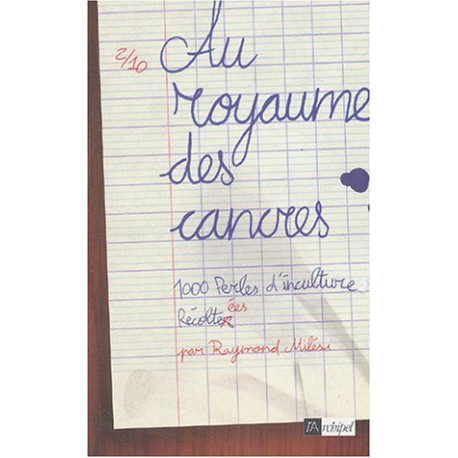 2/10
Au
royaume
des
cancres
1000 Perles d'inculture
RécolteR ées
par Raymond Milési
l'Archipel